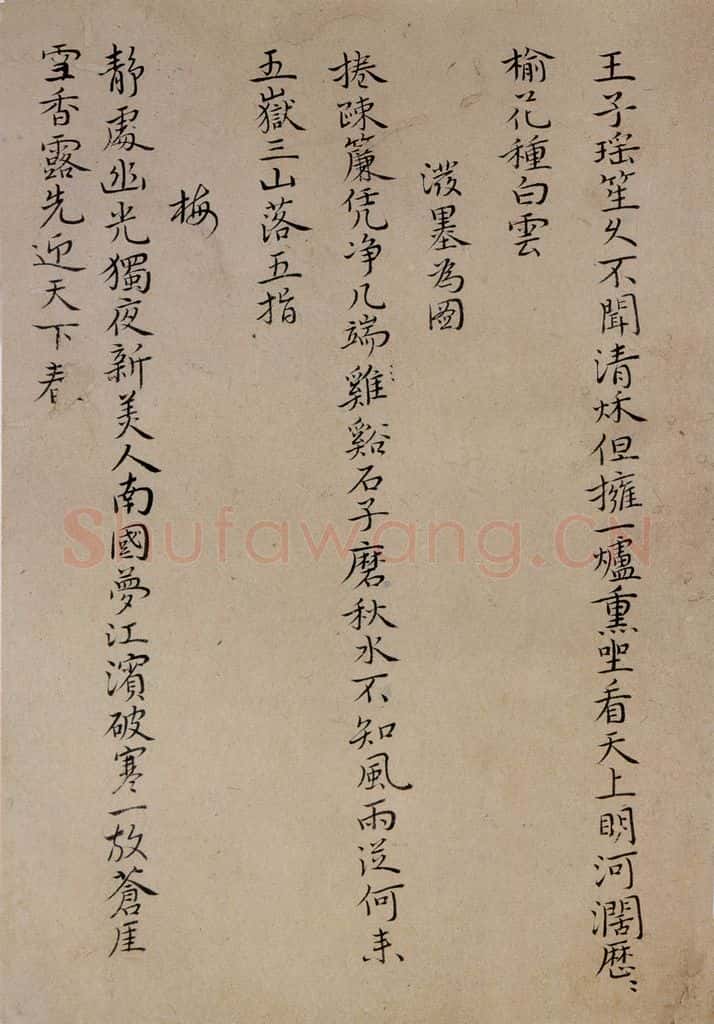 王子瑶笙久不聞清秌但擁一爐熏坐看天上明河濶歷〻
榆花種白雲
潑墨為圖
捲疎簾凭净几端雞谿石子磨秋水不知風雨從何来
五嶽三山落五指
梅
靜處幽光獨夜新美人南國夢江濱破寒一放蒼厓
雪香露先迎天下春
Shufawang.CN